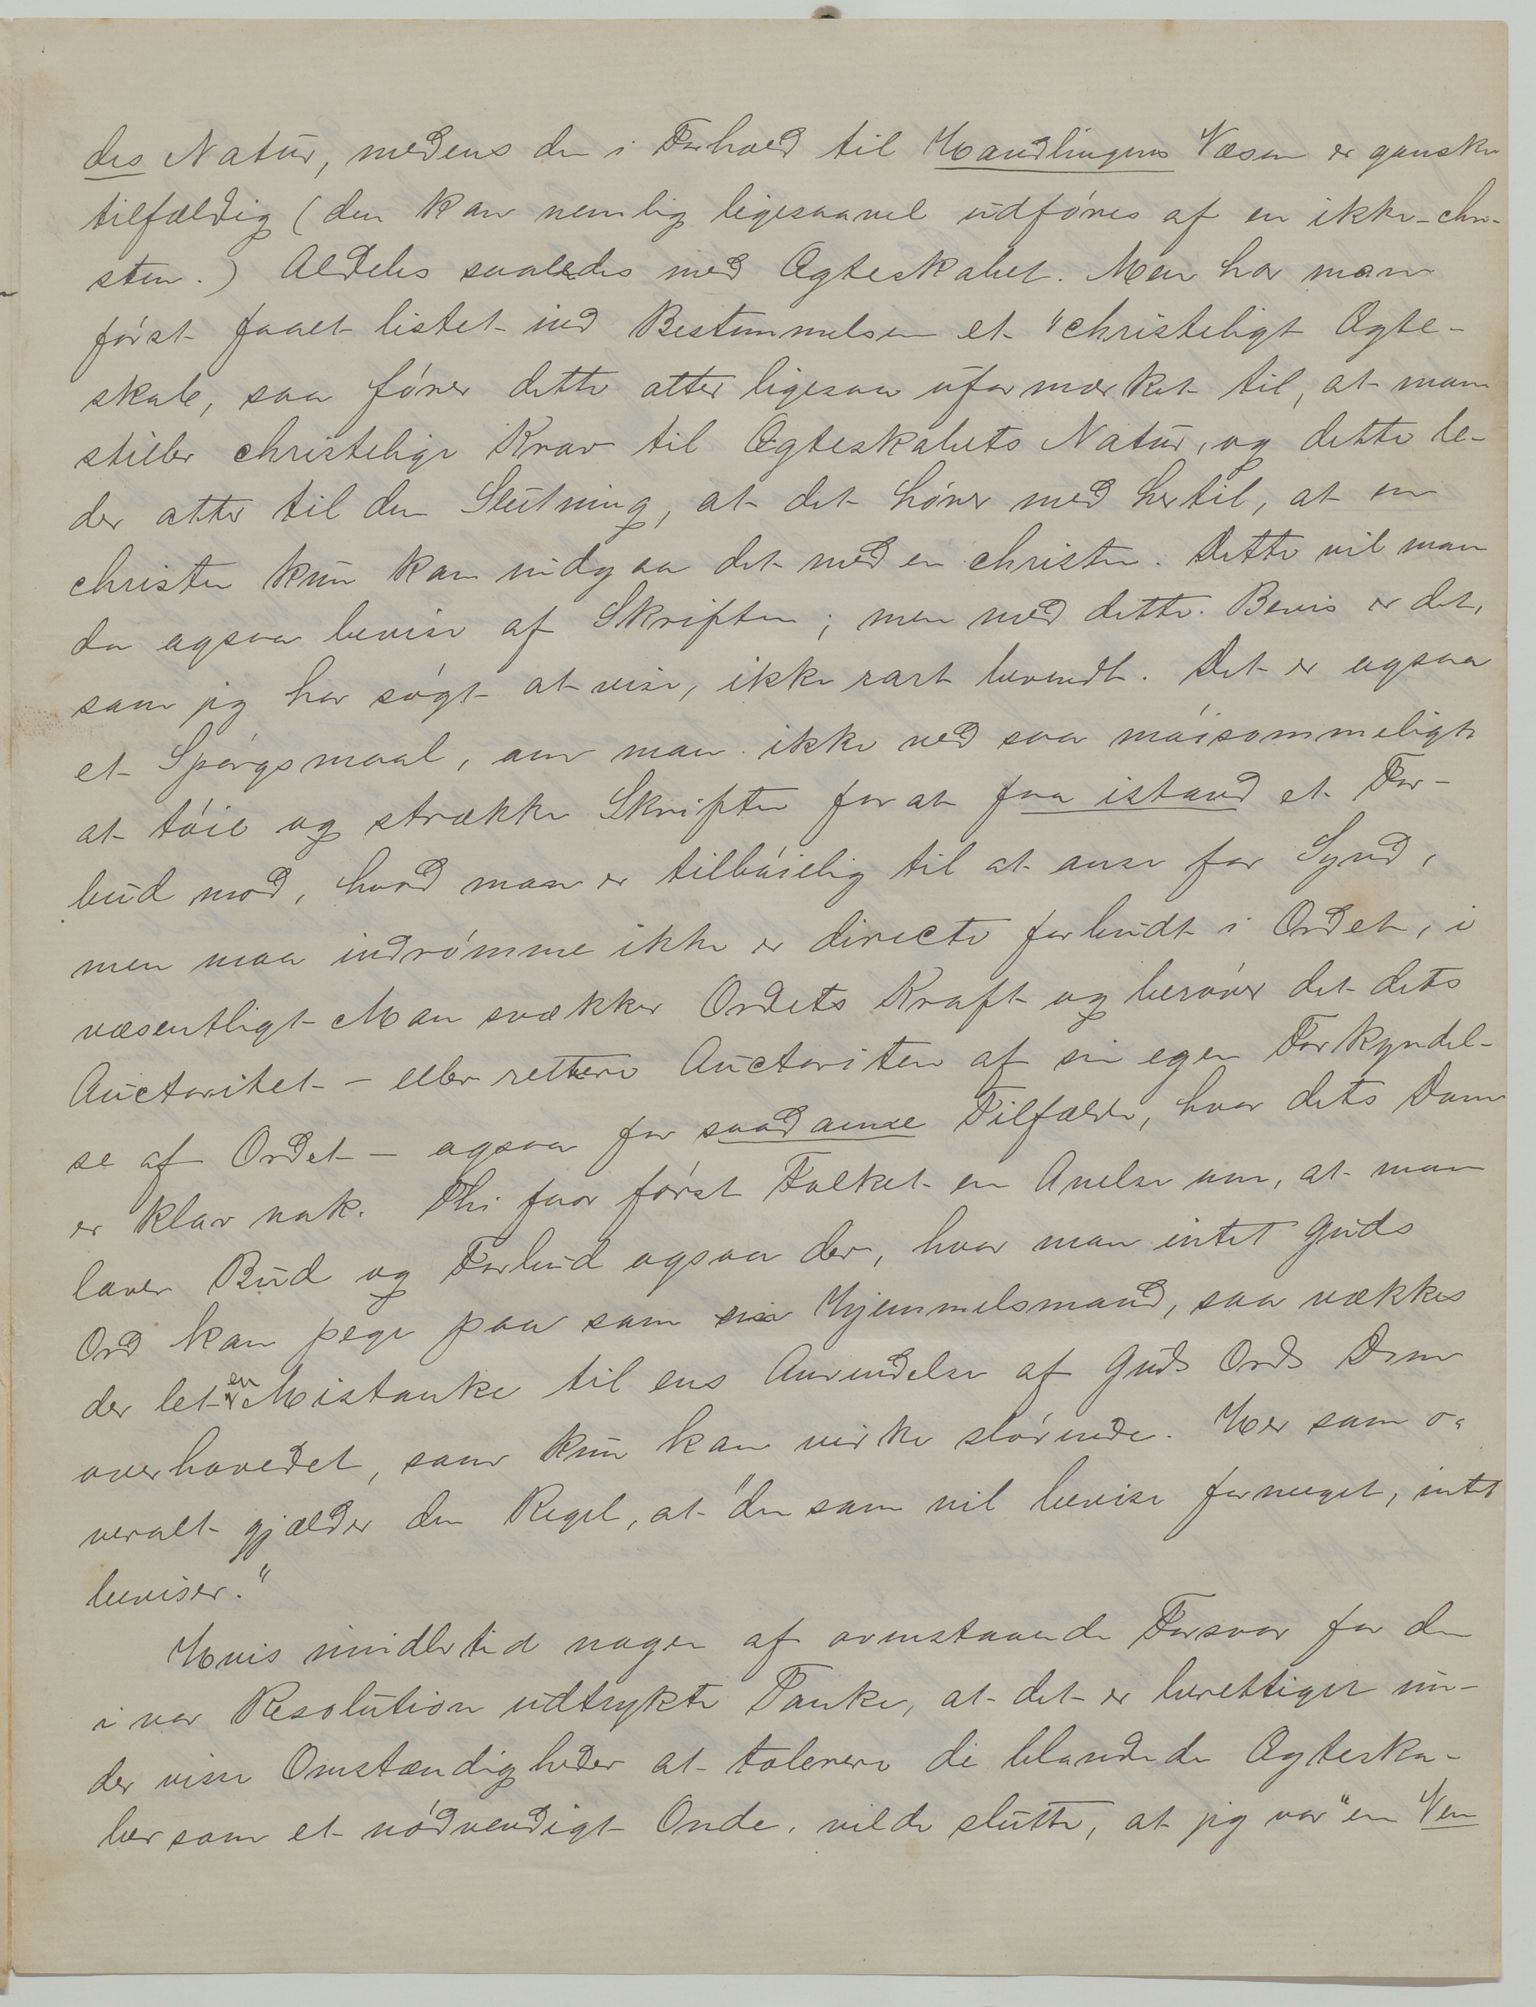 des Natur, medens den i Forhold til Handlingens Væsen er ganske
tilfældig (den kan nemlig ligesaavel udføres af en ikke-chri-
sten.) Aldeles saaledes med Ægteskabet. Men har man
først faaet listet ind Bestemmelsen et "christeligt Ægte-
skab, saa fører dette atter ligesaa uformærket til, at man
stiller christelige Krav til Ægteskabets Natur, og dette le-
der atter til den Slutning, at det hører med hertil, at en
christen kun kan indgaa det med en christen. Dette vil man
da ogsaa bevise af Skriften; men med dette Bevis er det,
som jeg har søgt at vise, ikke rart bevendt. Det er ogsaa
et Spørgsmaal, om man ikke ved saa møisommeligt
at tøie og strække Skriften for at faa istand et For-
bud mod, hvad man er tilbøielig til at anse for Synd,
men maa indrømme ikke er directe forbudt i Ordet, i
væsentligt Man svækker Ordets Kraft og berøver det dets
Auctoritet - eller rettere Auctoriten af sin egen Forkyndel-
se af Ordet - ogsaa for saadanne Tilfælde, hvor dets Dom
er klar nok. Thi faar først Folket en Anelse om, at man
laver Bud og Forbud ogsaa der, hvor man intet Guds
Ord kan pege paa som sin Hjemmelsmand, saa vækkes
der let en Mistanke til ens Anvendelse af Guds Ords Dom
overhovedet, som kun kan virke slørende. Her som o-
veralt gjælder den Regel, at "den som vil bevise formeget, intet
beviser."
Hvis imidlertid nogen af ovenstaaende Forsvar for den
i vor Resolution udtrykte Tanke, at det er berettiget un-
der visse Omstændigheder at tolerere de blandede Ægteska-
ber som et nødvendigt Onde, vilde slutte, at jeg var "en Ven